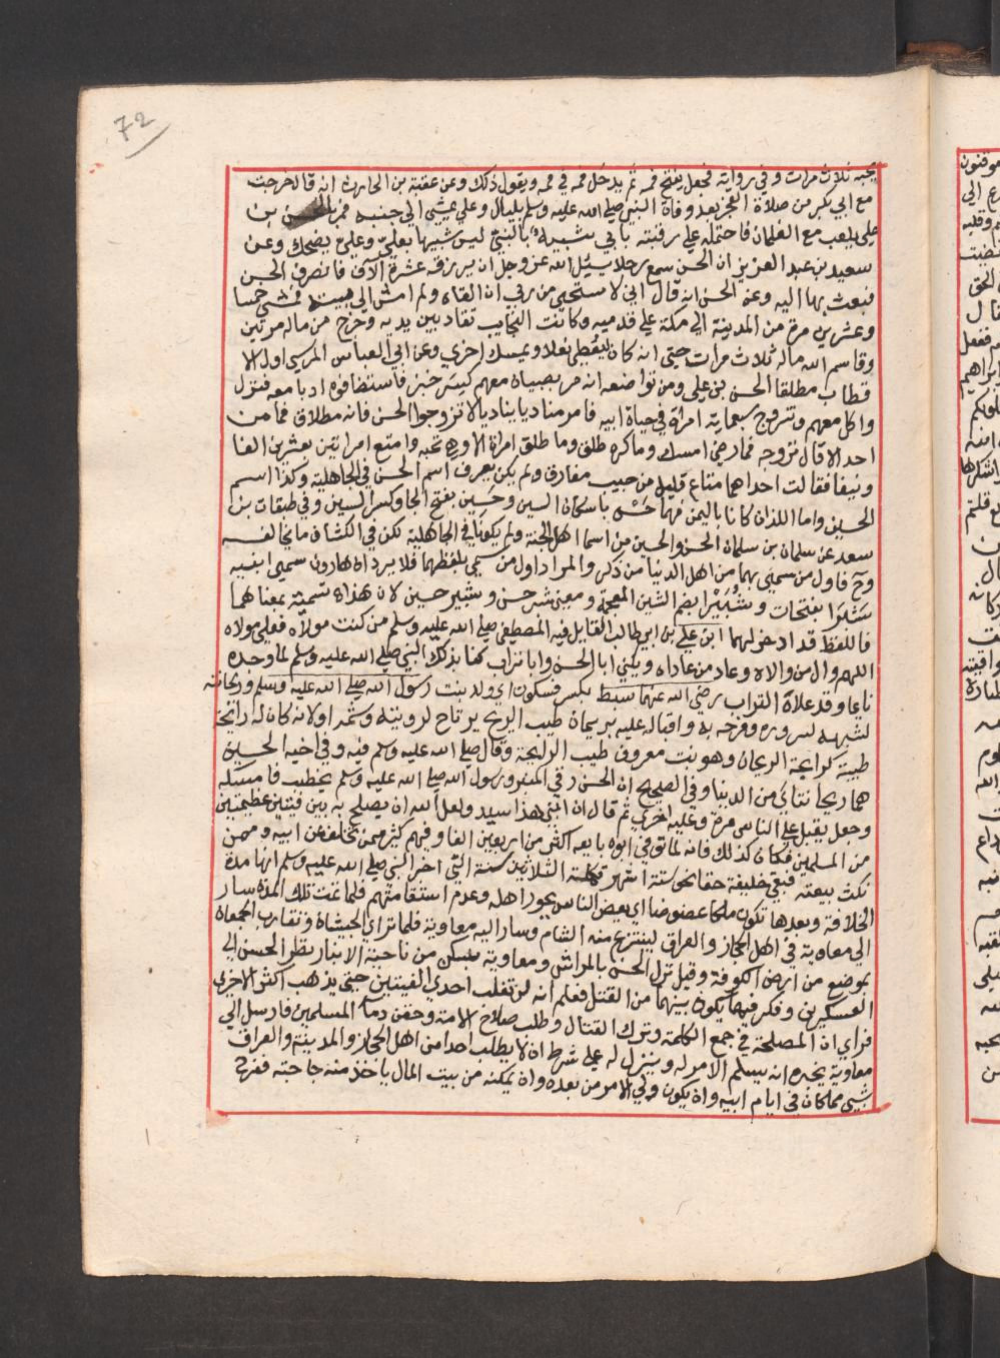 72
يحبه ثلاث مرات وفي رواية فجعل يفتح فمه ثم يدخل فمه في فمه ويقول ذلك وعن عقبة بن الحارث انه قال خرجت
مع ابي بكر من صلاة العصر بعد وفاة النبي صلى الله عليه وسلم بليال وعلي يمشي الي جنبه فمر بالحسن بن
علي يلعب مع الغلمان فاحتمله علي رقبته بابي شبيه بالنبي ليس شبيها بعلي وعلي يضحك وعن
سعيد بن عبد العزيز ان الحسن سمع رجلا يسئل الله عز وجل ان يرزقه عشرة الآف فانصرف الحسن
فبعث بها اليه وعن الحسن انه قال اني لاستحيي من ربي ان القاه ولم امش الي بيته فمشي خمسا
وعشرين مرة من المدينة الي مكة علي قدميه وكانت النجايب تقاد بين يديه وخرج من ماله مرتين
وقاسم الله ماله ثلاث مرات حتي انه كان ليعطي نعلا ويمسك اخري وعن ابي العباس المرسي اول الا
قطاب مطلقا الحسن بن علي ومن تواضعه انه مر بصبيان معهم كسر خبز فاستضافوه ادبا معه فنزل
واكل معهم وتزوج سبعماية امراة في حياة ابيه فامر مناديا ينادي الا تزوجوا الحسن فانه مطلاق فما من
احد الا قال نزوجه فما رضي امسك وما كره طلق وما طلق امراة الا وهي تحبه وامتع امراتين بعشرين الفا
ونيفا فقالت احداهما متاع قليل من حبيب مفارق ولم يكن يعرف اسم الحسن في الجاهلية وكذا اسم
الحسين واما اللذان كانا باليمن فهما حسن باسكان السين وحسين بفتح الحا وكسر السين وفي طبقات بن
سعد عن سلمان بن سلمان الحسن والحسين من اسما اهل الجنة ولم يكونا في الجاهلية لكن في الكشاف ما يخالفه
وح فاول من سمي بهما من اهل الدنيا من ذكر والمراد اول من سمي بلفظهما فلا يرد ان هارون سمي ابنيه
شبرا بفتحات وشبيرا بضم الشين المعجمة ومعني شبر حسن وشبير حسين لان هذا تسمية بمعناهما
فاللفظ قد ادخر لهما ابن علي بن ابي طالب القايل فيه المصطفي صلى الله عليه وسلم من كنت مولاه فعلي مولاه
اللهم وال من والاه وعاد من عاداه ويكني ابا الحسن وابا تراب كناه بذلك النبي صلى الله عليه وسلم لما وجده
نايما وقد علاه التراب رضي الله عنهما سبط بكسر فسكون اي ولد بنت رسول الله صلى الله عليه وسلم وريحانته
لشبهه لسروره وفرحه به واقباله عليه بريحان طيب الريح يرتاح لرويته وشمه او لانه كان له رائحة
طيبة كرايحة الريحان وهو نبت معروف طيب الرايحة وقال صلى الله عليه وسلم فيه وفي اخيه الحسين
هما ريحانتاي من الدنيا وفي الصحيح ان الحسن رقي المنبر ورسول الله صلى الله عليه وسلم يخطب فامسكه
وجعل يقبل علي الناس مرة وعليه اخري ثم قال ان ابني هذا سيد ولعل الله ان يصلح به بين فيتين عظيمتين
من المسلمين فكان كذلك فانه لما توفي ابوه بايعه اكثر من اربعين الفا وفيهم كثير ممن تخلف عن ابيه وممن
نكث بيعته فبقي خليفة حقا نحو ستة اشهر تكملة الثلاثين سنة التي اخبر النبي صلى الله عليه وسلم انها مدة
الخلافة وبعدها تكون ملكا عضوضا اي يعض الناس بجور اهله وعدم استقامتهم فلما تمت تلك المدة سار
الي معاوية في اهل الحجاز والعراق لينتزع منه الشام وسار اليه معاوية فلما تراي الجيشان وتقارب الجمعان
بموضع من ارض الكوفة وقيل نزل الحسن بالمداين ومعاوية بمسكن من ناحية الانبار نظر الحسن الي
العسكرين وفكر فيما يكون بينهما من القتل فعلم انه لن تغلب احدي الفيتين حتي يذهب اكثر الاخري
فراي ان المصلحة في جمع الكلمة وترك القتال وطلب صلاح الامة وحقن دما المسلمين فارسل الي
معاوية يخبره انه يسلم الامر له وينزل له علي شرط ان لا يطلب احدا من اهل الحجاز والمدينة والعراق
بشيي مما كان في ايام ابيه وان يكون ولي الامر من بعده وان يمكنه من بيت المال ياخذ منه حاجته ففرح